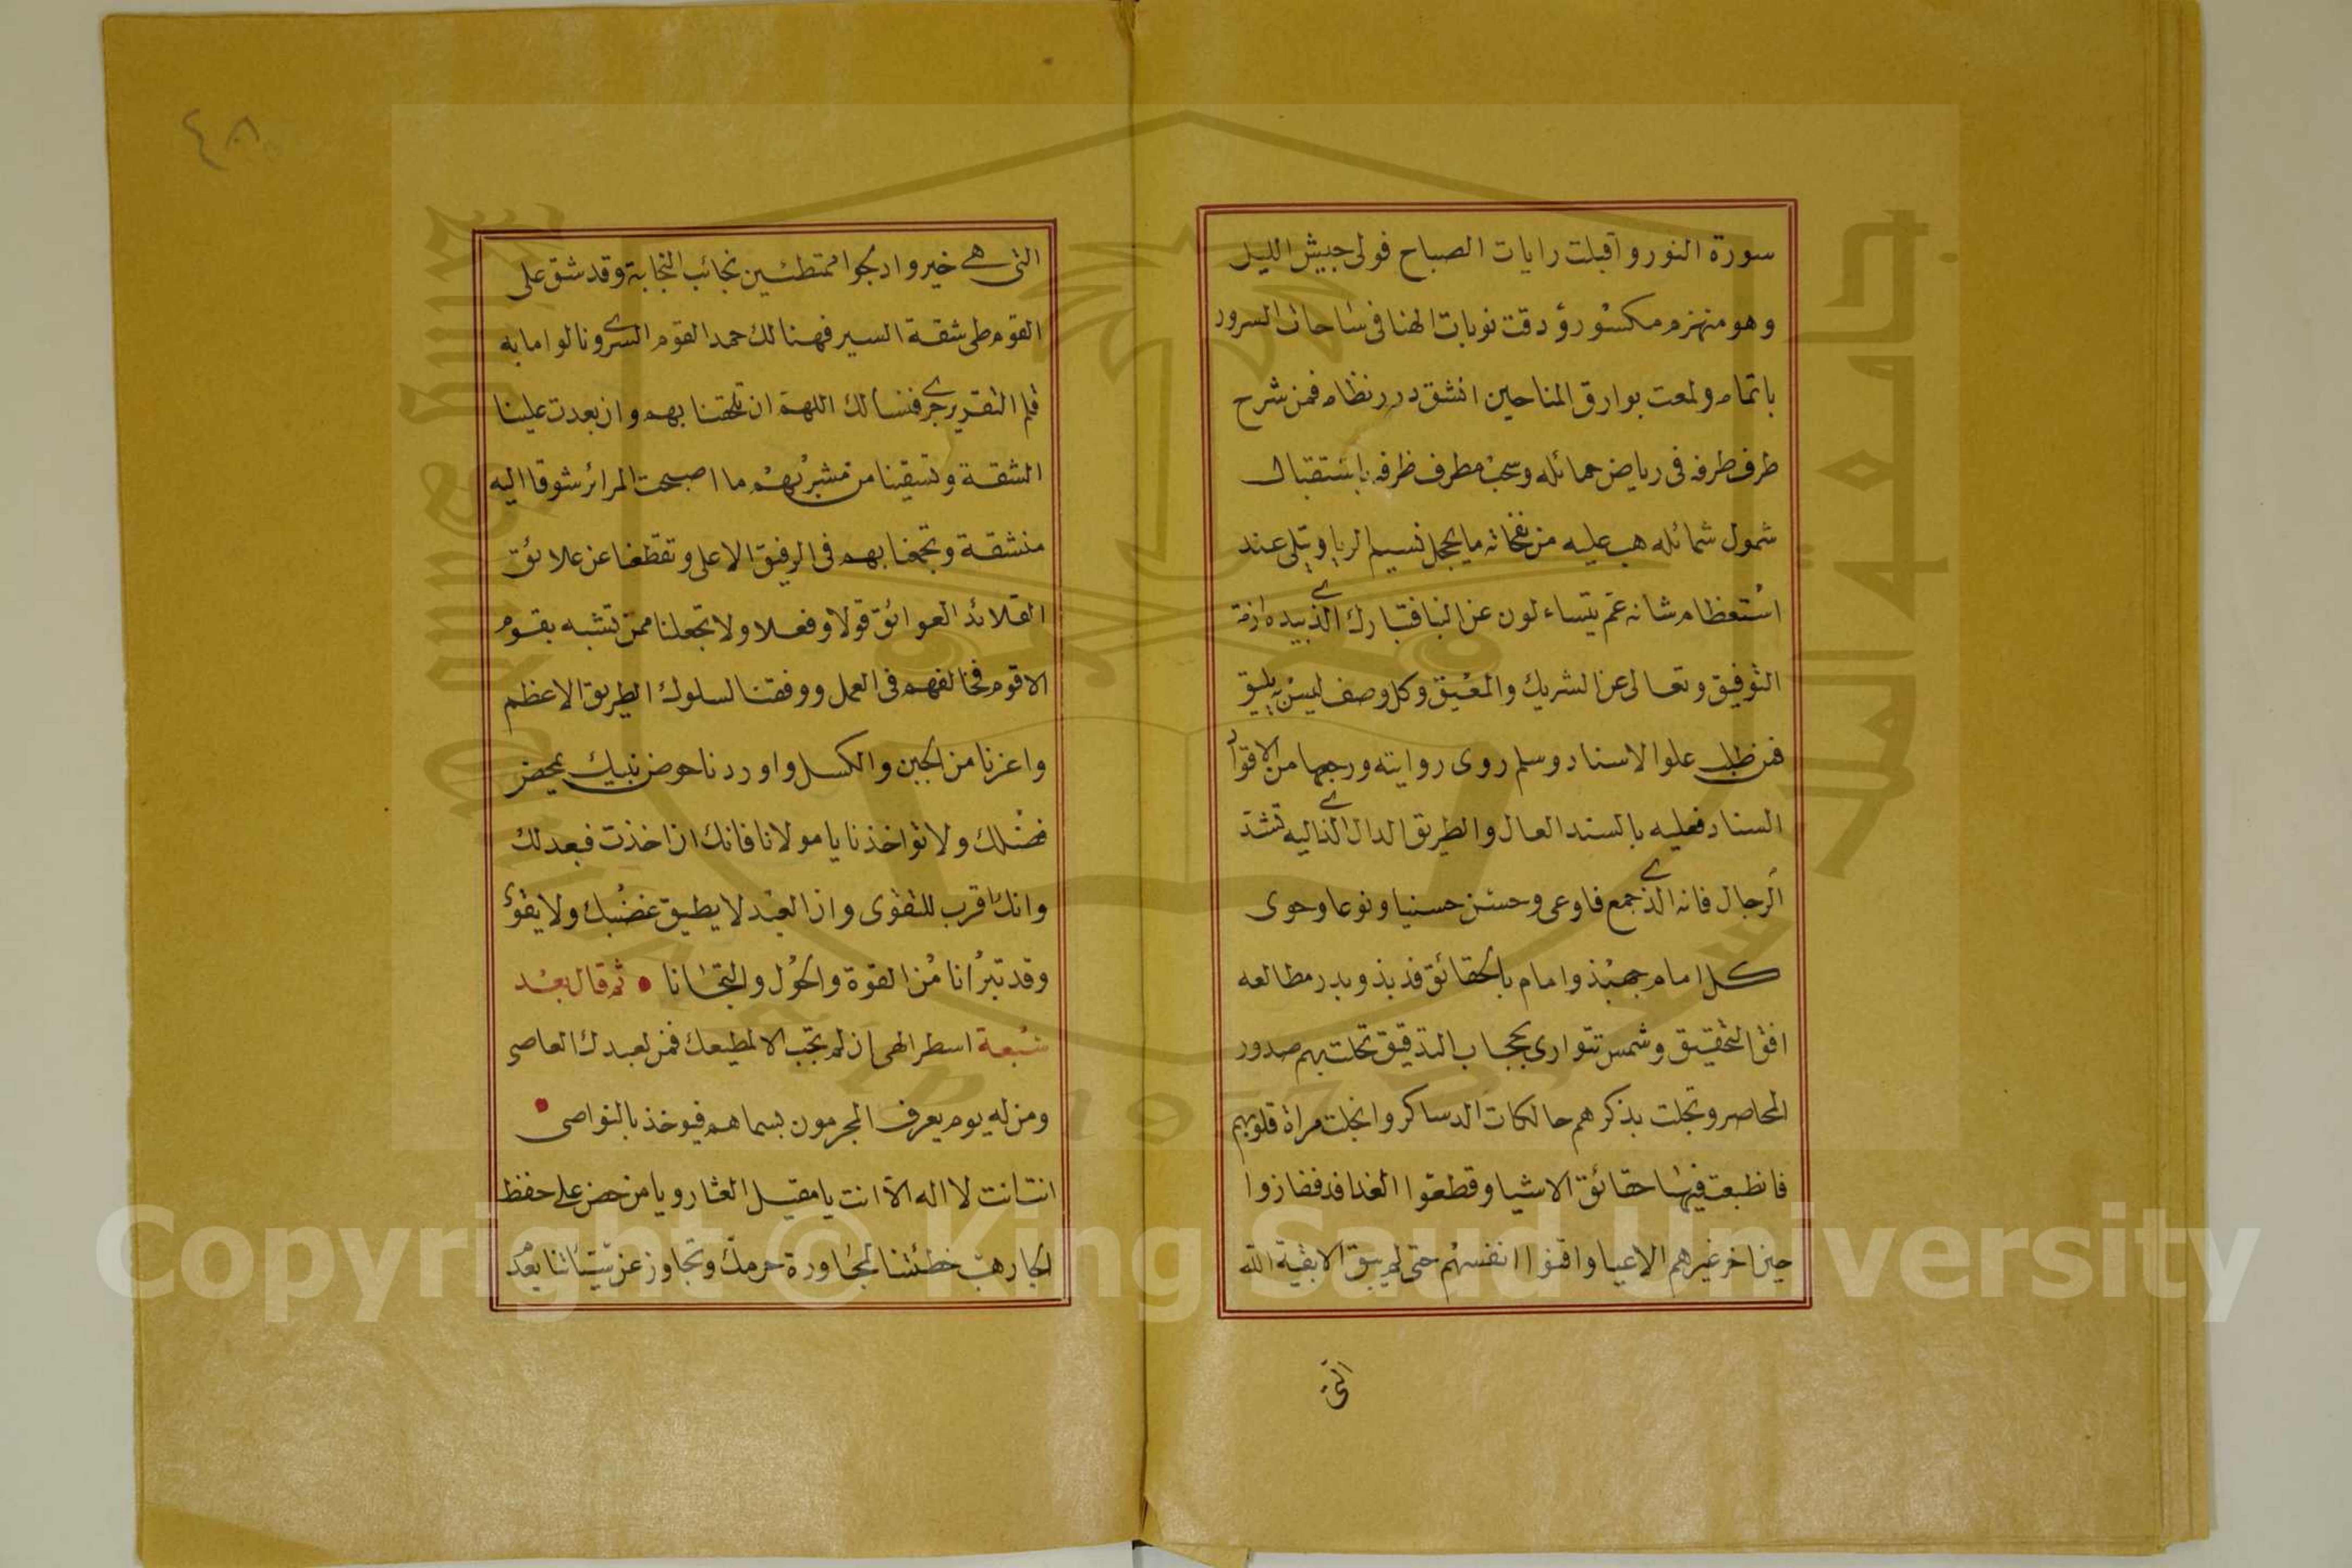 سورة النور وآقبلت رايات الصباح فولى جيش الليل
وهو منهزم مكسور ودقت نوبات الهنا فى ساحات السرور
باتمام ولمعت بوارق المناحين انشق درر نظام فمن شرح
طرف طرفه فى رياض حمائله وسحب مطرف ظرفه باستقبال
شمول شمائله هب عليه من نفحاته ما يخجل نسيم الربا ويتلى عند
استعظام شانه عم يتساءلون عن النبا فتبارك الذى بيده ازمة
التوفيق وتعالى عن الشريك والمعين وكل وصف ليس به يليق
فمن طلب علو الاسناد وسلم روى روايته ورجها من الاقوا
السناد فعليه بالسند العال والطريق الدال الذى اليه تشد
الرجال فانه الذى جمع فاوعى وحسن حسنيا ونوعا وحوى
كل امام جهبذ وامام بالحقائق فذ بذ وبدر مطالعه
افق التحقيق وشمس تتوارى بحجاب التدقيق تحلت بهم صدور
المحاصر وتجلت بذكرهم حالكات الدساكر وانجلت مراة قلوبهم
فانطبعت فيها حقائق الاشيا وقطعوا الفدافد ففازوا
حين اخر غيرهم الاعيا وافنوا انفسهم حتى لم يبق الا بقية الله
التى
٤٨
التى هى خير وادلجوا ممتطئين نجائب النجابة وقد شق على
القوم طى شقة السير فهنالك حمد القوم السرى ونالوا ما به
قلم التقرير جرى فنسالك اللهم ان تلحقنا بهم وان بعدت علينا
الشقة وتسقينا من مشربهم ما اصبحت المرائر شوقا اليه
منشقة وتجمعنا بهم فى الرفيق الاعلى وتقطعنا عن علائق
القلائد العوائق قولا وفعلا ولا تجعلنا ممن تشبه بقوم
الاقوم فخالفهم فى العمل ووفقنا لسلوك الطريق الاعظم
واعزنا من الجبن والكسل واوردنا حوض نبيك بمحض
فضلك ولا تؤاخذنا يا مولانا فانك ان اخذت فبعدلك
وانك اقرب للتقوى وان العبد لا يطيق غضبك ولا يقوى
وقد تبرأنا من القوة والحول والتجانا • ثم قال بعد
سبعة اسطر الهى إن لم تجب الا لمطيعك فمن لعبدك العاصى
ومن له يوم يعرف المجرمون بسماهم فيوخذ بالنواصى •
انت انت لا اله الا انت يا مقيل العثار ويا من حض على حفظ
الجار هب خطئنا لمجاورة حرمك وتجاوز عن سيئاتنا بعد